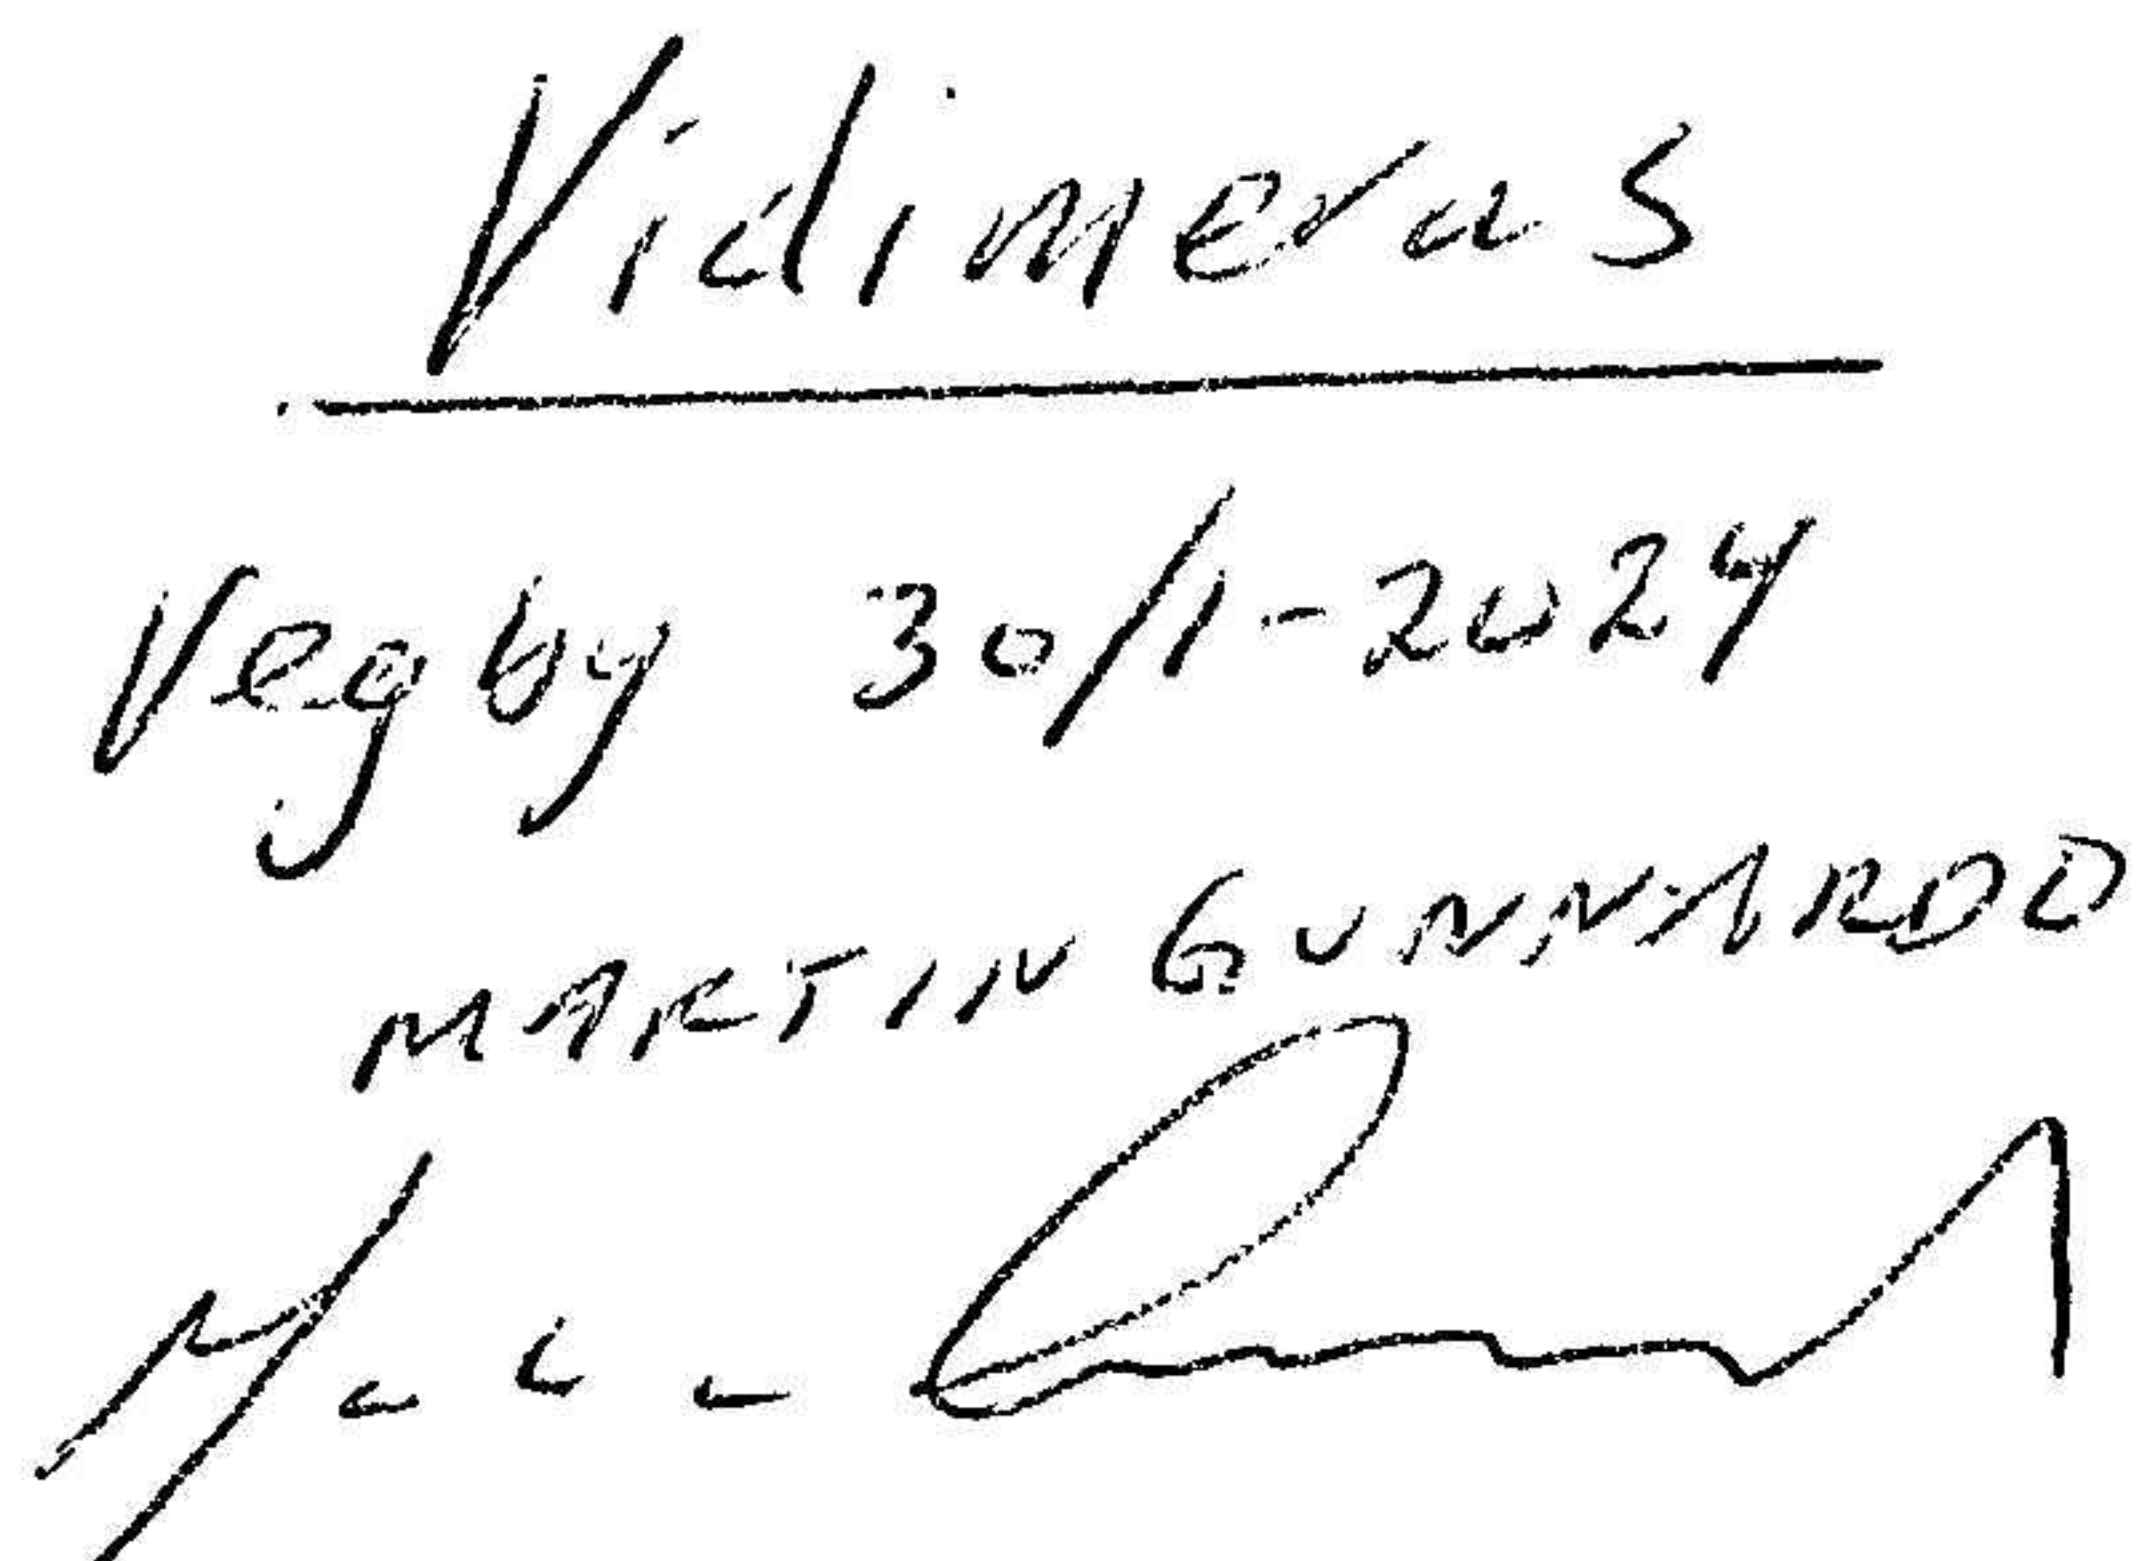 Vidimeras
Vegby 30/1-2024
MARTIN GUNNARDO